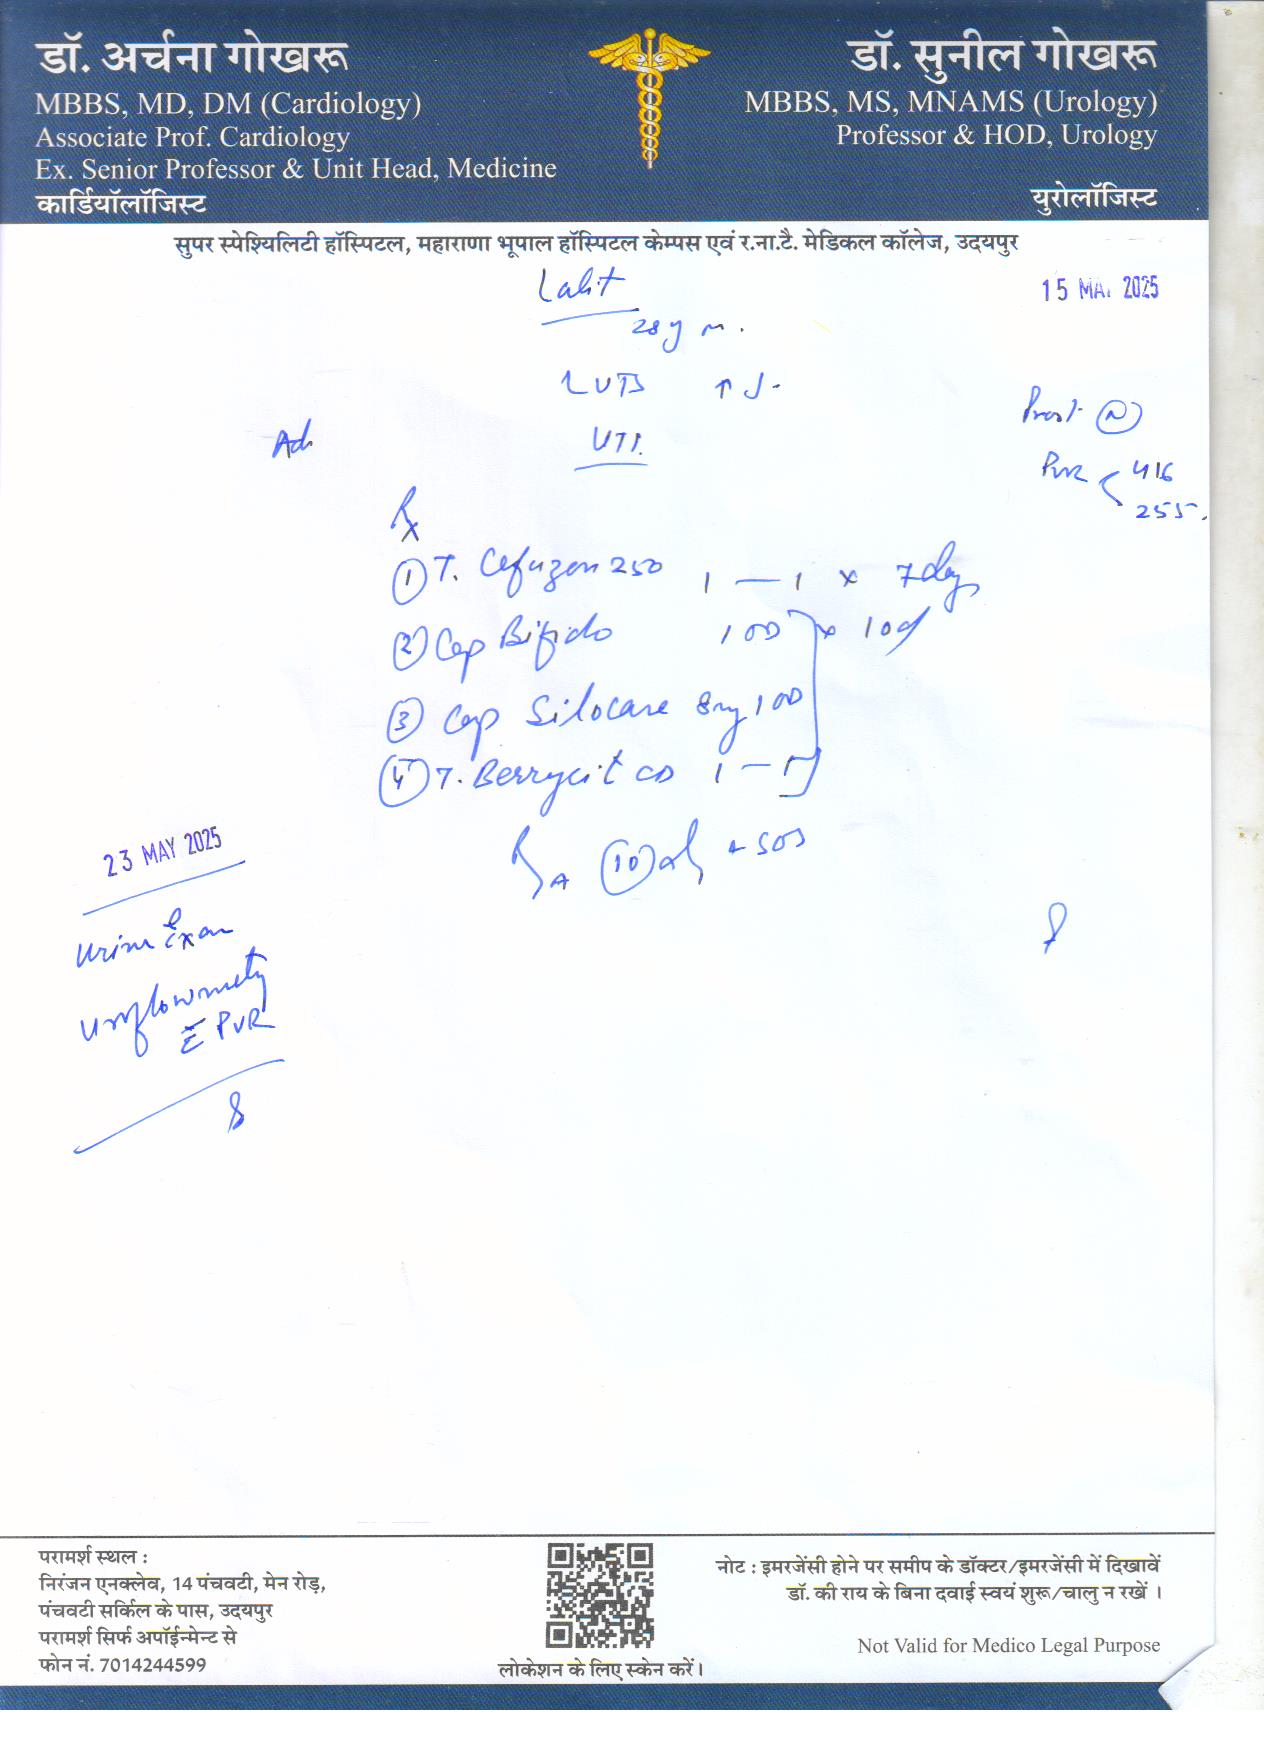 डॉ. अर्चना गोखरू
MBBS, MD, DM (Cardiology)
Associate Prof. Cardiology
Ex. Senior Professor & Unit Head, Medicine
कार्डियॉलॉजिस्ट
डॉ. सुनील गोखरू
MBBS, MS, MNAMS (Urology)
Professor & HOD, Urology
युरोलॉजिस्ट
सुपर स्पेश्यिलिटी हॉस्पिटल, महाराणा भूपाल हॉस्पिटल केम्पस एवं र.ना.टै. मेडिकल कॉलेज, उदयपुर
Lalit
15 MA. 2025
28y m.
LUTS ↑
UTI.
Prost. (N)
PVR 416
255.
Rx
① T. Cefuzon 250 1 — 1 x 7 day
② Cap Bifido 1 OD x 10d
③ Cap Silocare 8mg 1 OD
④ T. Berrycit CD 1 — 1
10 d + SOS
23 MAY 2025
Urine Exam
Uroflowmetry
c̄ PVR
परामर्श स्थल :
निरंजन एनक्लेव, 14 पंचवटी, मेन रोड़,
पंचवटी सर्किल के पास, उदयपुर
परामर्श सिर्फ अपॉईन्मेन्ट से
फोन नं. 7014244599
लोकेशन के लिए स्केन करें।
नोट : इमरजेंसी होने पर समीप के डॉक्टर/इमरजेंसी में दिखावें
डॉ. की राय के बिना दवाई स्वयं शुरू/चालु न रखें ।
Not Valid for Medico Legal Purpose